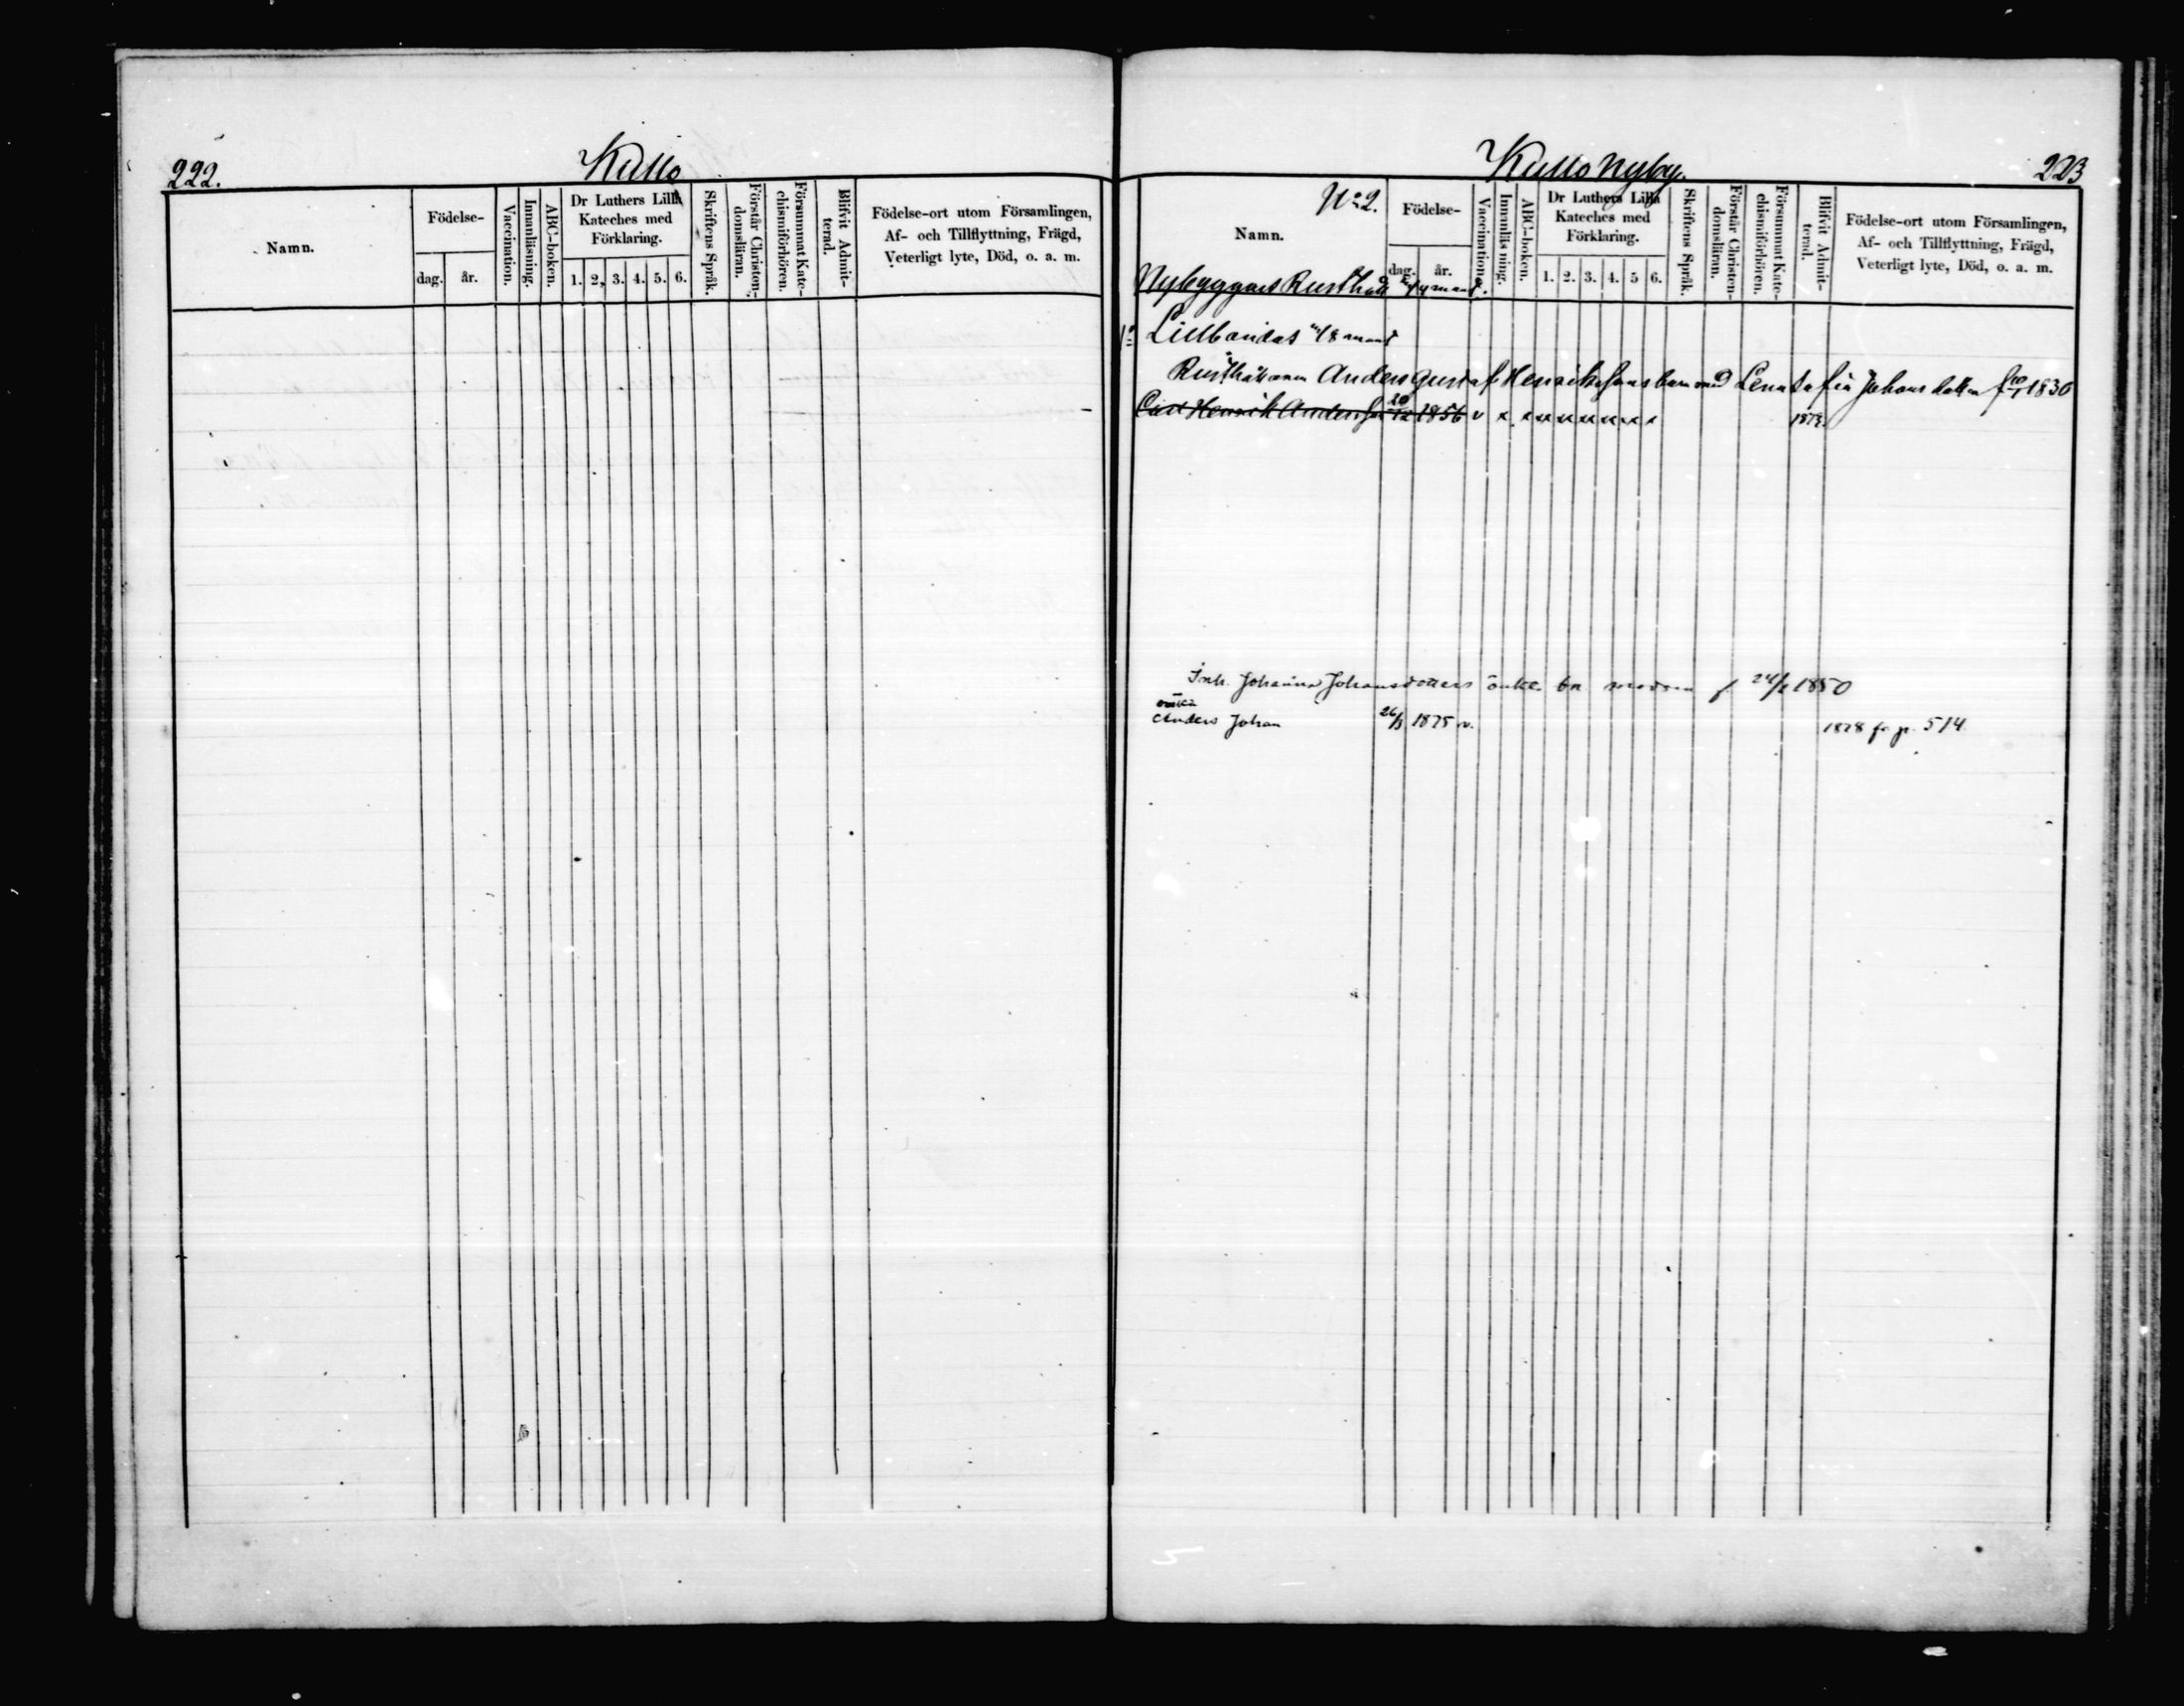 222.
Kullo
Namn.
Födelse-
dag.
år.
Vaccination.
Innanläsning.
ABC-boken.
Dr Luthers Lilla
Kateches med
Förklaring.
1. 2, 3. 4. 5. 6.
Skriftens Språk.
Förstår Christen-
domsläran.
Försummat Kate-
chismiförhören.
Blifvit Admit-
terad.
Födelse-ort utom Församlingen,
Af- och Tillflyttning, Frägd,
Veterligt lyte, Död, o. a. m.
Kullo Nyby.
223
No 2.
Namn.
Födelse-
dag.
år.
Vaccination.
Innanläsning.
ABC-boken.
Dr Luthers Lilla
Kateches med
Förklaring.
1. 2. 3. 4. 5 6.
Skriftens Språk.
Förstår Christen-
domsläran.
Försummat Kate-
chismiförhören.
Blifvit Admit-
terad.
Födelse-ort utom Församlingen,
Af- och Tillflyttning, Frägd,
Veterligt lyte, Död, o. a. m.
Nybyggars Rusthåll
Lillbondas
Rusthållaren Anders Gustaf Henrikssons barn med Lena Johansdotter 1830
Carl Henrik Andersson 20/12 1856 v x x x x x x x x x
Inh. Johanna Johansdotters f 1850
Anders Johan 26/3 1875 v. 1878 fr p. 514